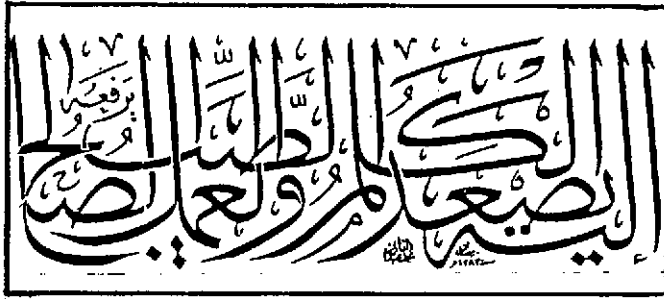 إليه يصعد الكلم الطيب والعمل الصالح يرفعه